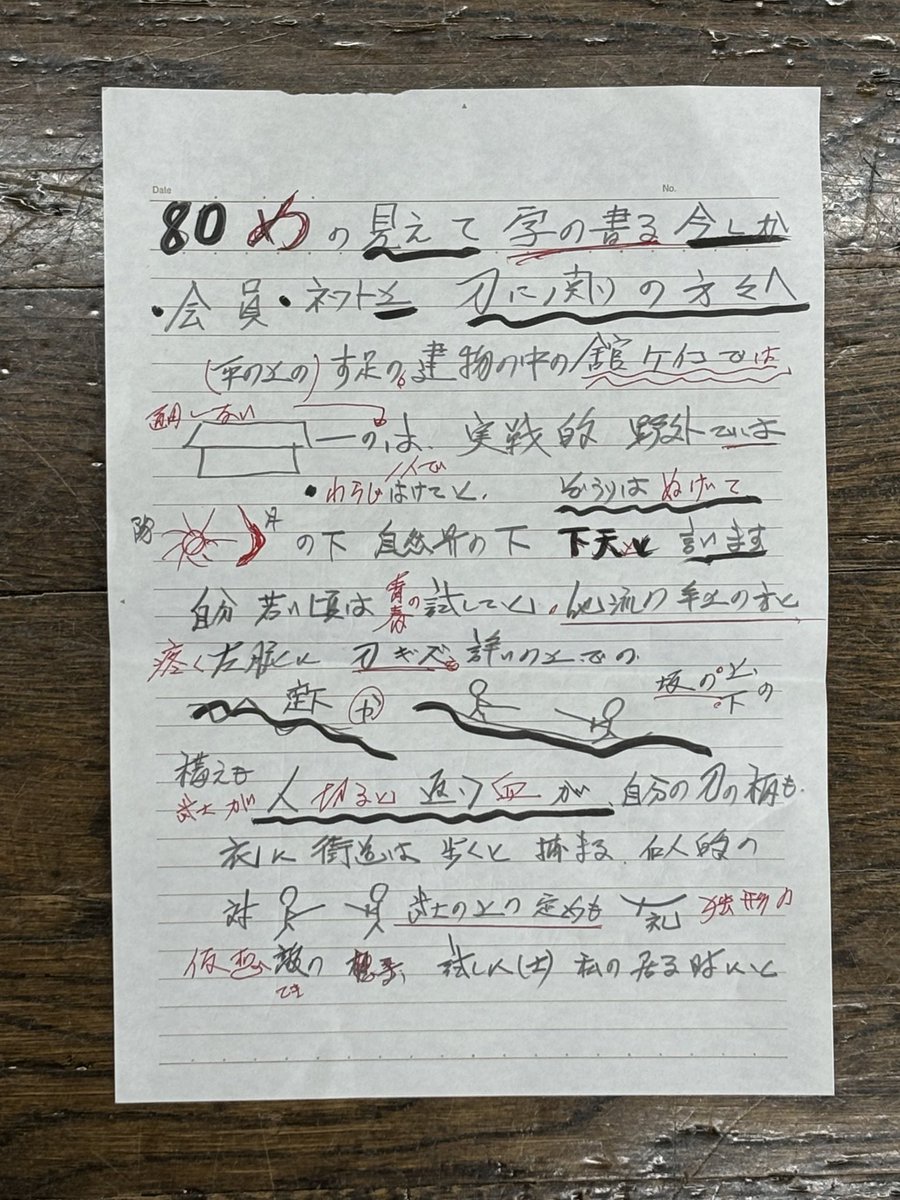 Date No.
80 めの見えて 字の書る 今しか
・会員・ネットと 刀に の方々へ
(平の上の)す足の。建物の中の館ケイコでは
ーのは 実戦的 野外では
人で
・わらじはけてと、 ぞうりはぬげて
月
の下 自然界の下 下天と言います
自分 若い頃は青春の試してと。他流の 上の方と
疼く左腕に 刀キズ。 の上での
坂の上、下の
構えも
武士が 人切ると返り血が 自分の刀の柄も.
衣に 街道は 歩くと 捕まる. 的の
対 武士の上の定めも 礼 独形の
仮想 敵の 試し人(士) 私の居る時に と
でき